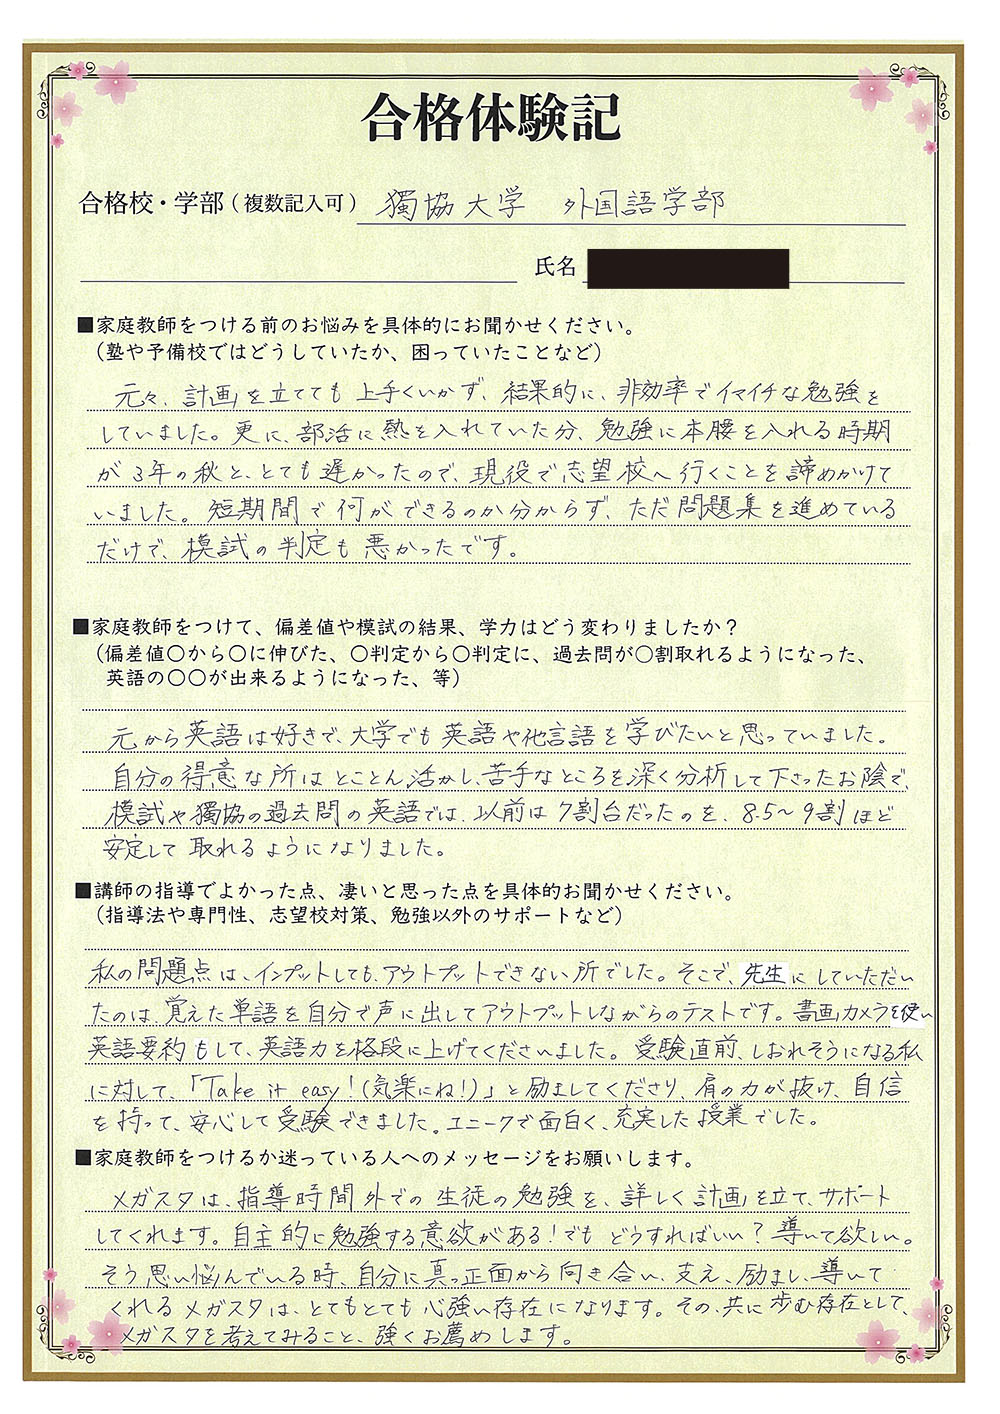 合格体験記
合格校・学部（複数記入可） 獨協大学 外国語学部
氏名
■家庭教師をつける前のお悩みを具体的にお聞かせください。
（塾や予備校ではどうしていたか、困っていたことなど）
元々、計画を立てても上手くいかず、結果的に、非効率でイマイチな勉強を
していました。更に、部活に熱を入れていた分、勉強に本腰を入れる時期
が3年の秋と、とても遅かったので、現役で志望校へ行くことを諦めかけて
いました。短期間で何ができるのか分からず、ただ問題集を進めている
だけで、模試の判定も悪かったです。
■家庭教師をつけて、偏差値や模試の結果、学力はどう変わりましたか？
（偏差値〇から〇に伸びた、〇判定から〇判定に、過去問が〇割取れるようになった、
英語の〇〇が出来るようになった、等）
元から英語は好きで、大学でも英語や他言語を学びたいと思っていました。
自分の得意な所はとことん活かし、苦手なところを深く分析して下さったお陰で、
模試や獨協の過去問の英語では、以前は7割台だったのを、8.5〜9割ほど
安定して取れるようになりました。
■講師の指導でよかった点、凄いと思った点を具体的お聞かせください。
（指導法や専門性、志望校対策、勉強以外のサポートなど）
私の問題点は、インプットしても、アウトプットできない所でした。そこで、先生にしていただい
たのは、覚えた単語を自分で声に出してアウトプットしながらのテストです。書画カメラを使い
英語要約もして、英語力を格段に上げてくださいました。受験直前、しおれそうになる私
に対して、「Take it easy!(気楽にね!)」と励ましてくださり、肩の力が抜け、自信
を持って、安心して受験できました。ユニークで面白く、充実した授業でした。
■家庭教師をつけるか迷っている人へのメッセージをお願いします。
メガスタは、指導時間外での生徒の勉強を、詳しく計画を立て、サポート
してくれます。自主的に勉強する意欲がある!でもどうすればいい?導いて欲しい。
そう思い悩んでいる時、自分に真っ正面から向き合い、支え、励まし、導いて
くれるメガスタは、とてもとても心強い存在になります。その、共に歩む存在として、
メガスタを考えてみること、強くお薦めします。